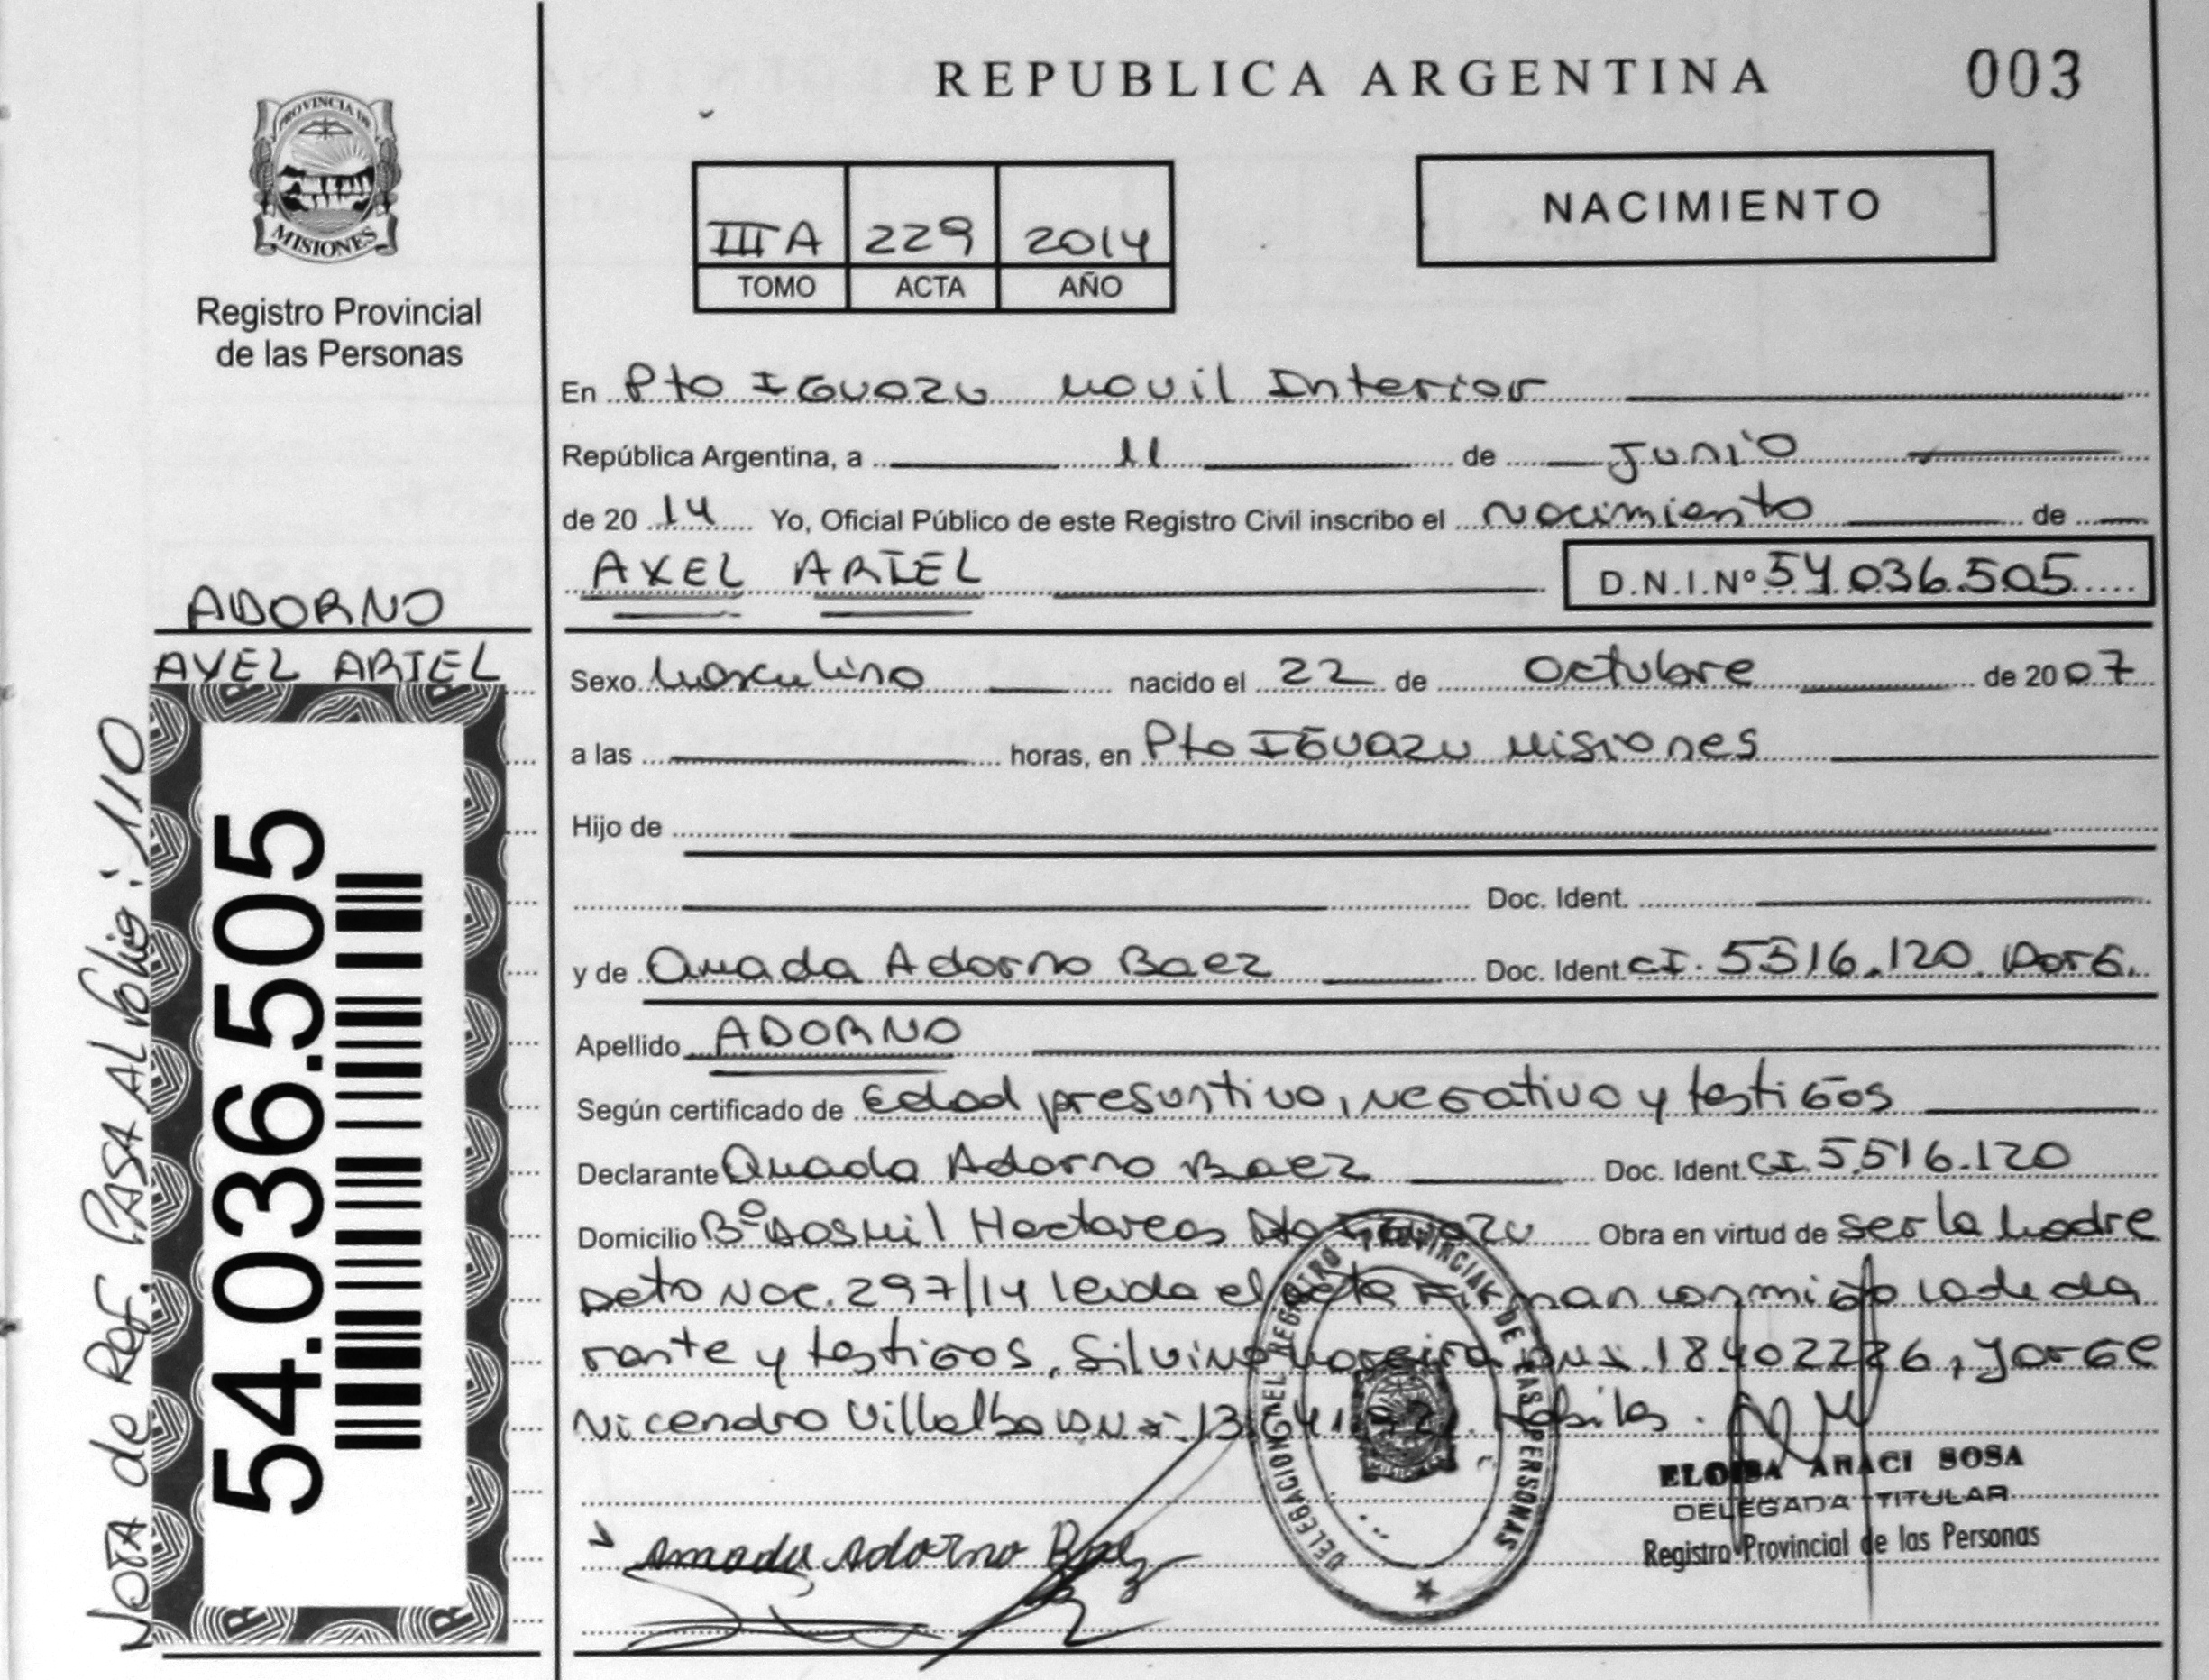 REPUBLICA ARGENTINA
003
PROVINCIA DE
MISIONES
Registro Provincial
de las Personas
NACIMIENTO
III A 229 2014
TOMO ACTA AÑO
En Pto IGUAZU Movil Interior
República Argentina, a 11 de Junio
de 2014 Yo, Oficial Público de este Registro Civil inscribo el Nacimiento de
AXEL ARIEL D.N.I.Nº 54.036.505
ADORNO
AXEL ARIEL
Sexo Masculino nacido el 22 de Octubre de 2007
a las horas, en Pto IGUAZU Misiones
Hijo de
Doc. Ident.
y de Amada Adorno Baez Doc. Ident. CI. 5516.120
Apellido ADORNO
Según certificado de Edad presuntiva, negativo y testigos
Declarante Amada Adorno Baez Doc. Ident. CI. 5.516.120
Domicilio Bº Dosmil Hectareas Pto Iguazu Obra en virtud de ser la Madre
Nac. 297/14 leida el acta Firman conmigo la decla
rante y testigos, Silvino DNI 18402226, Jorge
Nicendro Villalba DNI Habiles.
Amada Adorno Baez
DELEGACION DEL REGISTRO PROVINCIAL DE LAS PERSONAS
MISIONES
ELOISA ARACI SOSA
DELEGADA TITULAR
Registro Provincial de las Personas
54.036.505
NOTA de Ref. PASA AL folio: 110